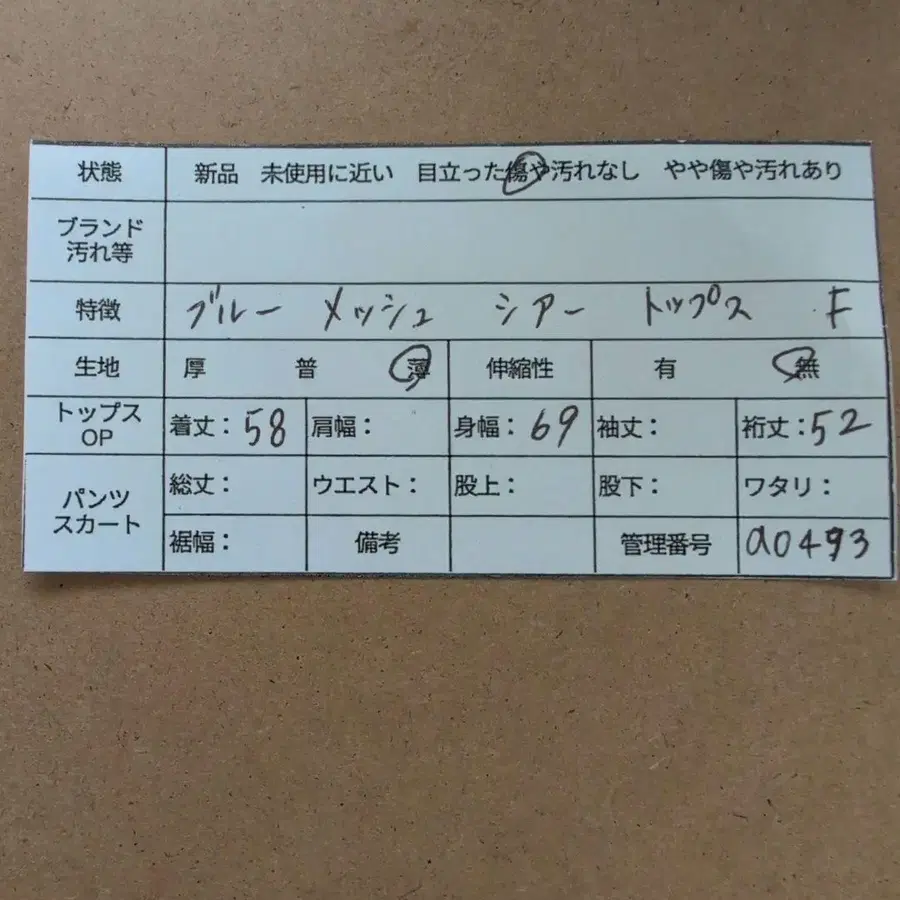 状態 新品 未使用に近い 目立った傷や汚れなし やや傷や汚れあり
ブランド
汚れ等
特徴 ブルー メッシュ シアー トップス F
生地 厚 普 薄 伸縮性 有 無
トップス
OP
着丈：58 肩幅： 身幅：69 袖丈： 裄丈：52
パンツ
スカート
総丈： ウエスト： 股上： 股下： ワタリ：
裾幅： 備考 管理番号 a0493